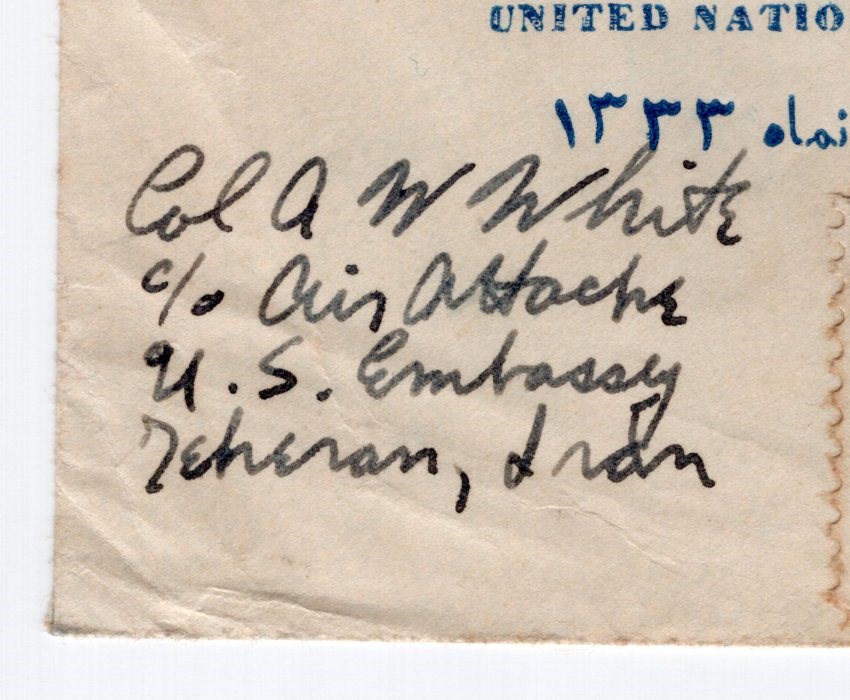 UNITED NATIO
نماه ۱۳۳۳
Col A W White
c/o Air Attache
U.S. Embassy
Teheran, Iran